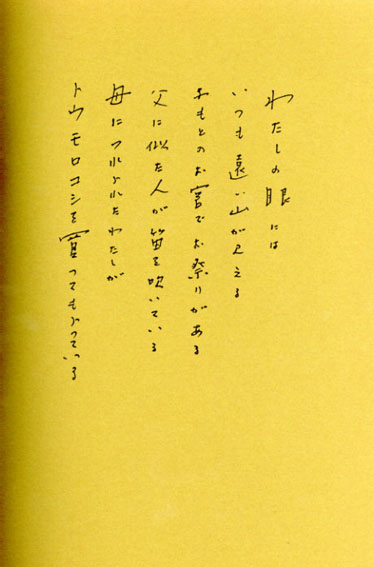 わたしの眼には
いつも遠い山が見える
ふもとのお宮でお祭りがある
父に似た人が笛を吹いている
母につれられたわたしが
トウモロコシを買ってもらっている